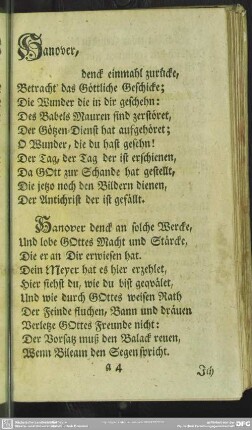 Hanover,
denck einmahl zurücke,
Betracht das Göttliche Geschicke;
Die Wunder die in dir geschehn:
Des Babels Mauren sind zerstöret,
Der Götzen-Dienst hat aufgehöret;
O Wunder, die du hast gesehn!
Der Tag, der Tag der ist erschienen,
Da GOtt zur Schande hat gestellt,
Die jetzo noch den Bildern dienen,
Der Antichrist der ist gefällt.
Hanover denck an solche Wercke,
Und lobe GOttes Macht und Stärcke,
Die er an Dir erwiesen hat.
Dein Meyer hat es hier erzehlet,
Hier siehst du, wie du bist gequälet,
Und wie durch GOttes weisen Rath
Der Feinde fluchen, Bann und dräuen
Verletze GOttes Freunde nicht:
Der Vorsatz muß den Balack reuen,
Wenn Bileam den Segen spricht.
a 4
Ich